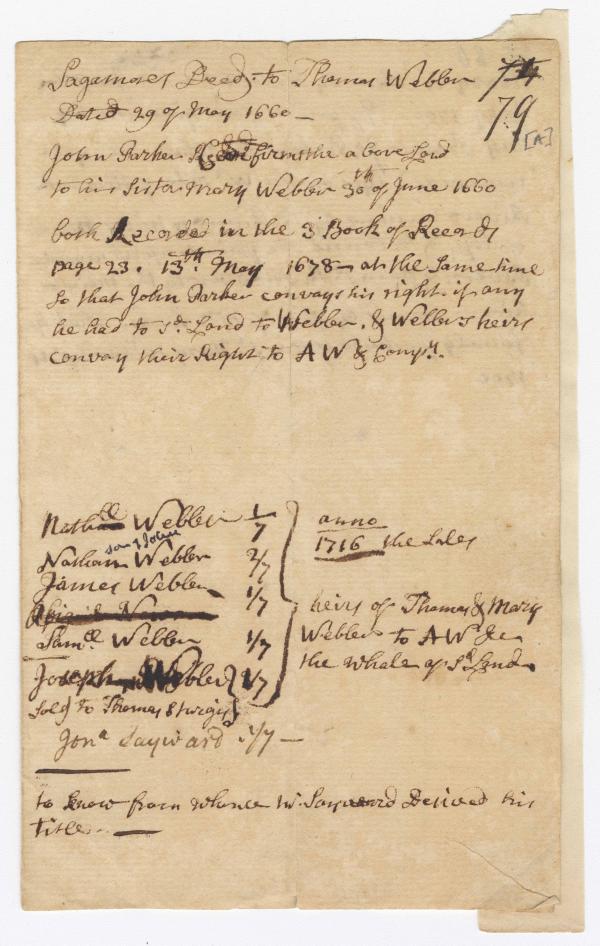 Sagamores Deed, to Thomas Webber 74
Dated 29 of May 1660 —
79
[A]
John Parker firms the above Land
to his Sister Mary Webber 30th of June 1660
both Recorded in the 3 Book of Records
page 23. 13th May 1678 — at the Same time
So that John Parker convays his right if any
he had to sd. Land to Webber. & Webbers heirs
convay their Right to A W & Compy.
Nathll Webber 1/7
son of John
Nathan Webber 2/7
James Webber 1/7
Samll Webber 1/7
Joseph Webber 1/7
Sold to Thomas Sturgis
Jona Sayward 1/7 —
anno
1716 the Sales
heirs of Thomas & Mary
Webber to A W &c
the Whole of sd Land
to know from whence Mr Sayward Derived his
title. —